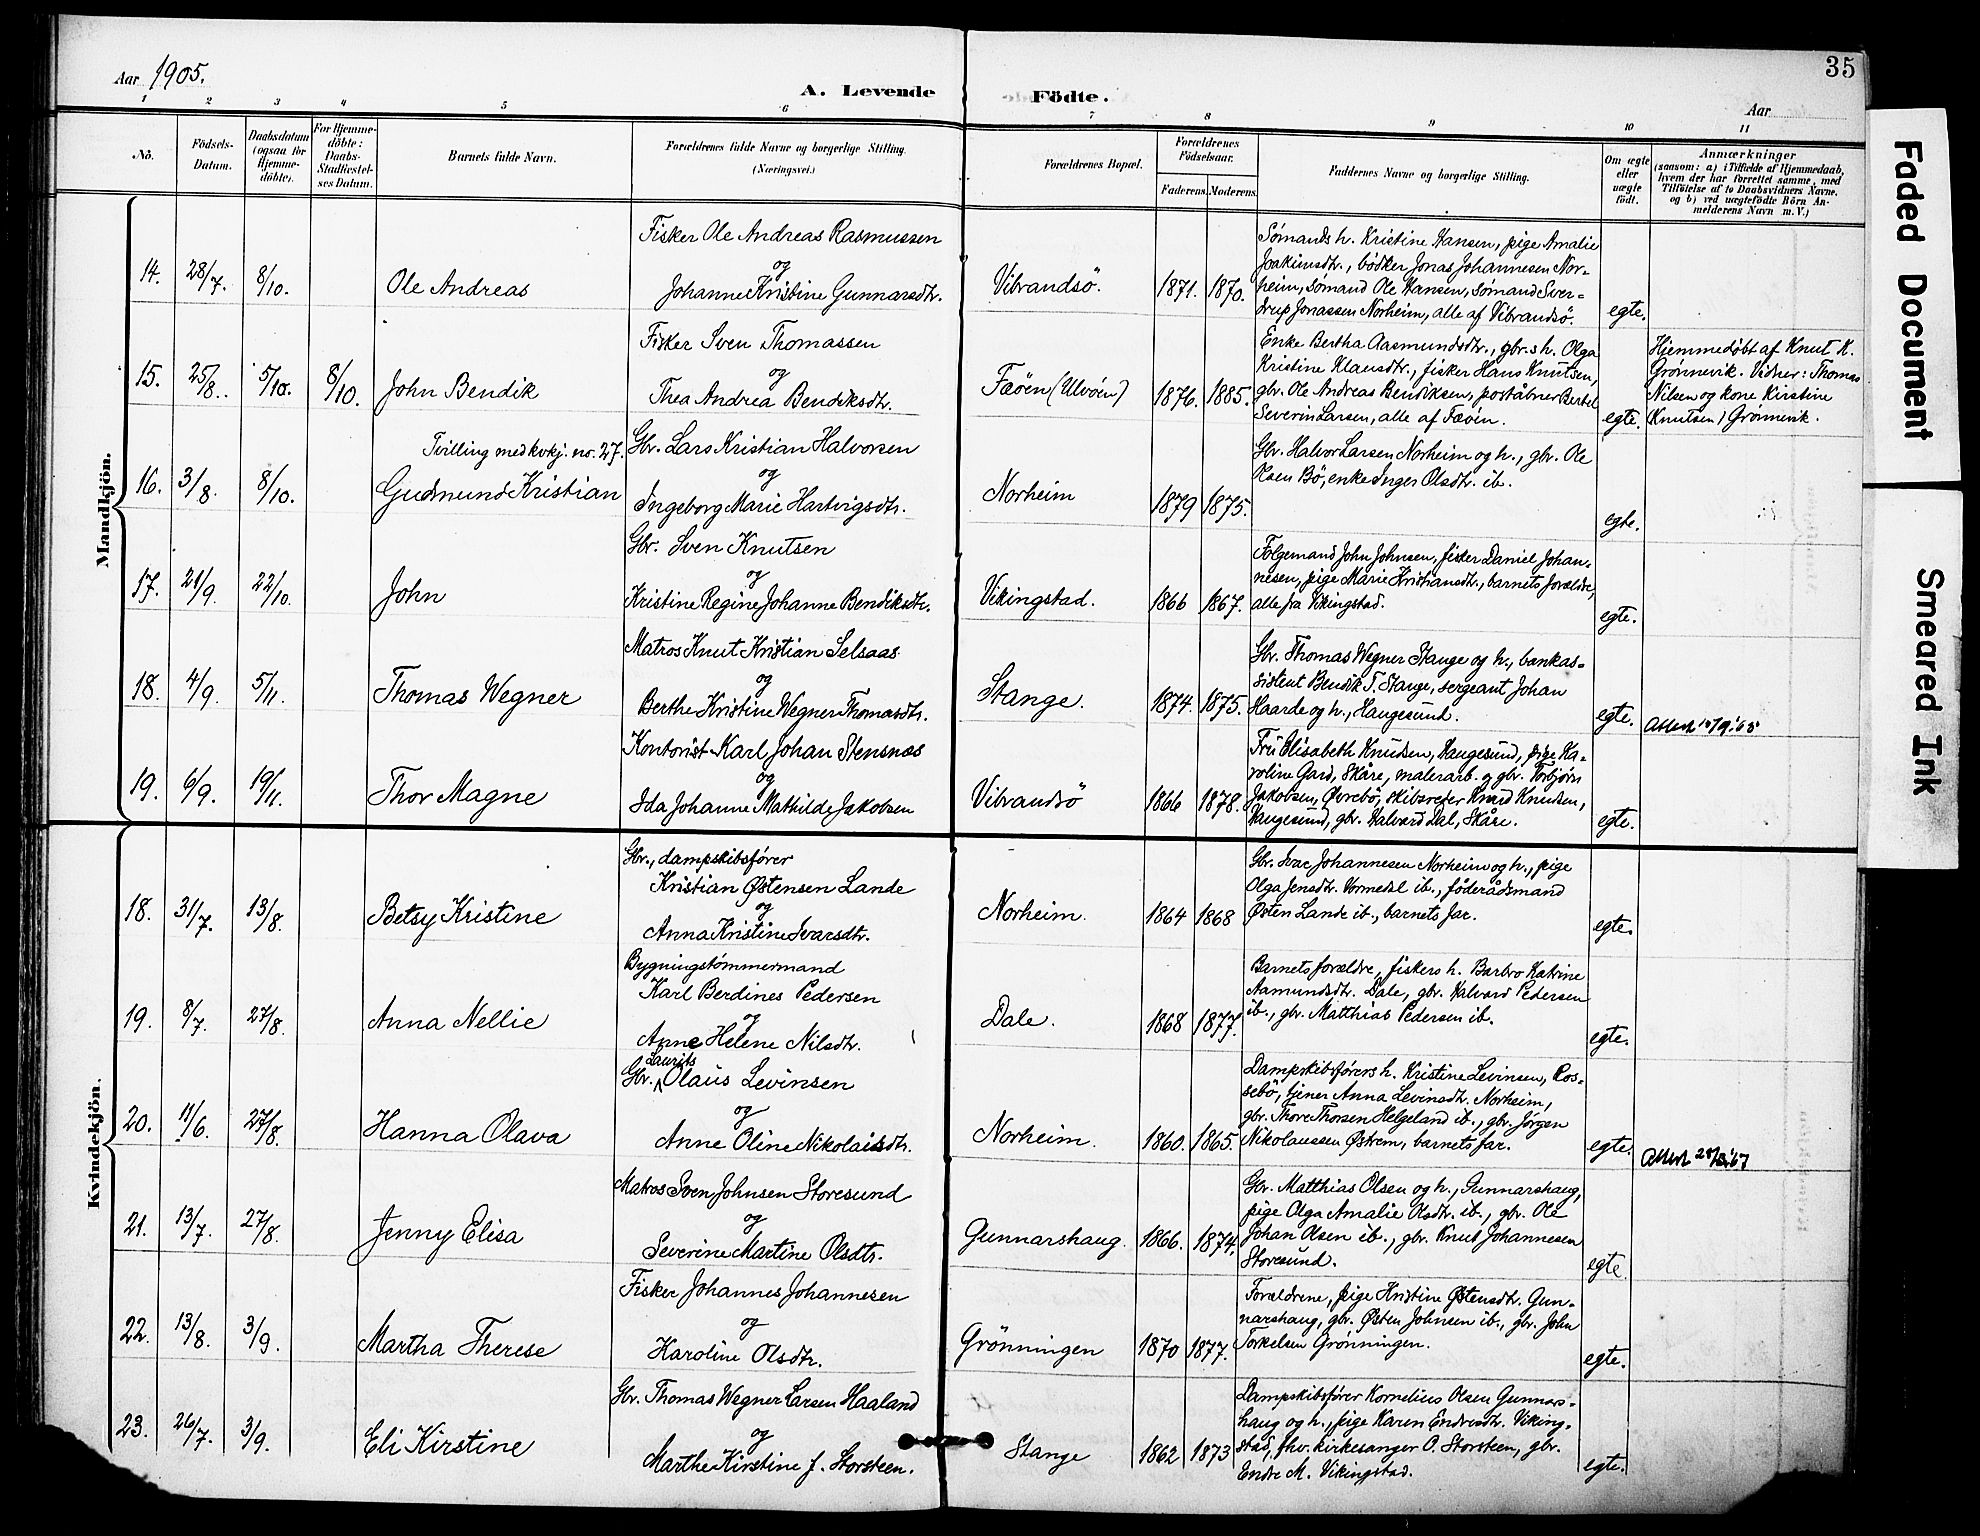 Aar 1905.
A. Levende Födte.
Aar
35
1 2 3 4 5 6 7 8 9 10 11
No.
Födsels-
Datum.
Daabsdatum
(ogsaa for
Hjemme-
döbte).
For Hjemme-
döbte:
Daabs-
Stadfæstel-
ses Datum.
Barnets fulde Navn.
Forældrenes fulde Navne og borgerlige Stilling.
(Næringsvei.)
Forældrenes Bopæl.
Forældrenes
Födselsaar.
Faderens. Moderens.
Faddernes Navne og borgerlige Stilling.
Om ægte
eller
uægte
födt.
Anmærkninger
(saasom: a) i Tilfælde af Hjemmedaab,
hvem der har forrettet samme, med
Tilföielse af to Daabsvidners Navne.
og b) ved uægtefödte Börn An-
melderens Navn m. V.)
Mandkjön.
14. 28/7. 8/10.
Ole Andreas
Fisker Ole Andreas Rasmussen
og
Johanne Kristine Gunnarsdtr.
Vibrandsö.
1871. 1870.
Sømands h. Kristine Hansen, pige Amalie
Joakimsdtr., bödker Jonas Johannesen Nor-
heim, sømand Ole Hansen, sømand Sver-
drup Jonassen Norheim, alle af Vibrandsö.
egte.
15. 25/8. 5/10. 8/10.
John Bendik
Fisker Sven Thomassen
og
Thea Andrea Bendiksdtr.
Fæöen (Ulvöen)
1876. 1885.
Enke Bertha Aasmundsdtr., gbr.s h. Olga
Kristine Klausdtr., fisker Hans Knutsen,
gbr. Ole Andreas Bendiksen, poståbner Bertel
Severin Larsen, alle af Fæöen.
egte.
Hjemmedøbt af Knut K.
Grønnevik. Vidner: Thomas
Nilsen og kone Kirstine
(Knutsen) Grønnevik.
16. 3/8. 8/10.
Tvilling med kvkj. no. 27.
Gudmund Kristian
Gbr. Lars Kristian Halvorsen
og
Ingeborg Marie Hartvigsdtr.
Norheim
1879 1875.
Gbr. Halvor Larsen Norheim og h., gbr. Ole
Olsen Bö, enke Inger Olsdtr. ib.
egte.
17. 21/9. 22/10.
John
Gbr. Sven Knutsen
og
Kristine Regine Johanne Bendiksdtr.
Vikingstad.
1866 1867.
Følgemand John Johnsen, fisker Daniel Johan-
nesen, pige Marie Kristiansdtr., barnets forældre,
alle fra Vikingstad.
egte.
18. 4/9. 5/11.
Thomas Wegner
Matros Knut Kristian Selsaas
og
Berthe Kristine Wegner Thomasdtr.
Stange.
1874. 1875.
Gbr. Thomas Wegner Stange og h., bankas-
sistent Bendik T. Stange, sergeant Johan
Haarde og h., Haugesund.
egte.
19. 6/9. 19/11.
Thor Magne
Kontorist Karl Johan Stensnæs
og
Ida Johanne Mathilde Jakobsen
Vibrandsö
1866 1878.
Fru Elisabeth Knudsen, Haugesund, pige Ka-
roline Gard, Skåre, malerarb. og gbr. Torbjörn
Jakobsen, Øvrebö, skibsreder Knud Knudsen,
Haugesund, gbr. Halvard Dal, Skåre.
egte.
Kvindekjön.
18. 31/7. 13/8.
Betsy Kristine
Gbr., dampskibsfører
Kristian Østensen Lande
og
Anna Kristine Ivarsdtr.
Norheim.
1864 1868
Gbr. Ivar Johannesen Norheim og h., pige
Olga Jensdtr. Vormedal ib., föderådsmand
Østen Lande ib., barnets far.
egte.
19. 8/7. 27/8.
Anna Nellie
Bygningstömmermand
Karl Berdines Pedersen
og
Anne Helene Nilsdtr.
Dale.
1868 1877.
Barnets forældre, fiskers h. Barbro Katrine
Aamundsdtr. Dale, gbr. Halvard Pedersen
ib., gbr. Matthias Pedersen ib.
egte.
20. 11/6. 27/8.
Hanna Olava
Laurits
Gbr. Olaus Levinsen
og
Anne Oline Nikolaisdtr.
Norheim.
1860. 1865.
Dampskibsførers h. Kristine Levinsen, Ros-
sebö, tjener Anna Levinsdtr. Norheim,
gbr. Thore Thorsen Helgeland ib., gbr. Jørgen
Nikolaussen Østrem, barnets far.
egte.
21. 13/7. 27/8.
Jenny Elisa
Matros Sven Johnsen Storesund
og
Severine Martine Olsdtr.
Gunnarshaug.
1866. 1874.
Gbr. Matthias Olsen og h., Gunnarshaug,
pige Olga Amalie Olsdtr. ib., gbr. Ole
Johan Olsen ib., gbr. Knut Johannesen
Storesund.
egte.
22. 13/8. 3/9.
Martha Therese
Fisker Johannes Johannesen
og
Karoline Olsdtr.
Grönningen
1870 1877.
Forældrene, pige Kristine Østensdtr. Gun-
narshaug, gbr. Østen Johnsen ib., gbr. John
Torkelsen Grönningen.
egte.
23. 26/7. 3/9.
Eli Kirstine
Gbr. Thomas Wegner Larsen Haaland
og
Marthe Kirstine f. Storsteen.
Stange
1862 1873
Dampskibsfører Kornelius Olsen Gunnars-
haug og h., pige Karen Endresdtr. Viking-
stad, fhv. kirkesanger O. Storsteen, gbr.
Endre M. Vikingstad.
egte.
Faded Document
Smeared Ink